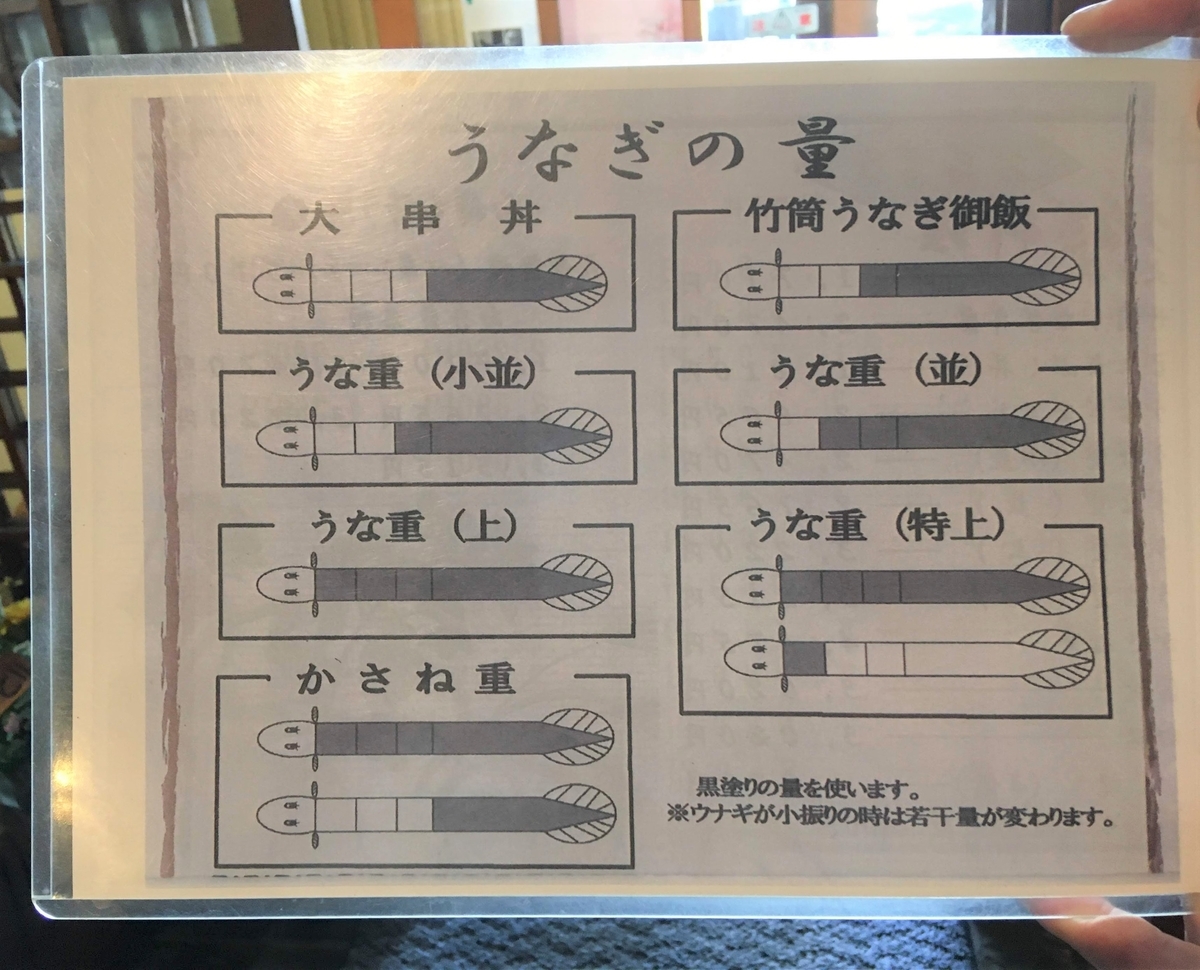 うなぎの量
大串丼
竹筒うなぎ御飯
うな重（小並）
うな重（並）
うな重（上）
うな重（特上）
かさね重
黒塗りの量を使います。
※ウナギが小振りの時は若干量が変わります。